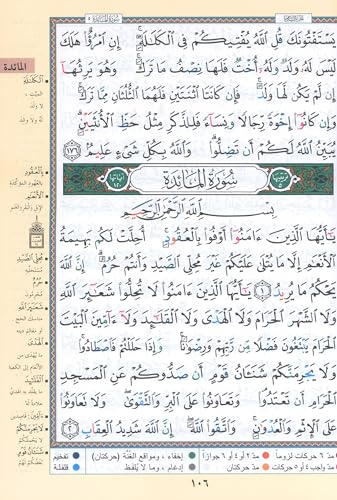 سُورَةُ المَائِدَة ٥
يَسْتَفْتُونَكَ قُلِ ٱللَّهُ يُفْتِيكُمْ فِى ٱلْكَلَٰلَةِ ۚ إِنِ ٱمْرُؤٌا۟ هَلَكَ
لَيْسَ لَهُۥ وَلَدٌ وَلَهُۥٓ أُخْتٌ فَلَهَا نِصْفُ مَا تَرَكَ ۚ وَهُوَ يَرِثُهَآ
إِن لَّمْ يَكُن لَّهَا وَلَدٌ ۚ فَإِن كَانَتَا ٱثْنَتَيْنِ فَلَهُمَا ٱلثُّلُثَانِ مِمَّا تَرَكَ ۚ
وَإِن كَانُوٓا۟ إِخْوَةً رِّجَالًا وَنِسَآءً فَلِلذَّكَرِ مِثْلُ حَظِّ ٱلْأُنثَيَيْنِ ۗ
يُبَيِّنُ ٱللَّهُ لَكُمْ أَن تَضِلُّوا۟ ۗ وَٱللَّهُ بِكُلِّ شَىْءٍ عَلِيمٌۢ ١٧٦
سُورَةُ المَائِدَةِ
آياتها ١٢٠
بِسْمِ ٱللَّهِ ٱلرَّحْمَٰنِ ٱلرَّحِيمِ
يَٰٓأَيُّهَا ٱلَّذِينَ ءَامَنُوٓا۟ أَوْفُوا۟ بِٱلْعُقُودِ ۚ أُحِلَّتْ لَكُم بَهِيمَةُ
ٱلْأَنْعَٰمِ إِلَّا مَا يُتْلَىٰ عَلَيْكُمْ غَيْرَ مُحِلِّى ٱلصَّيْدِ وَأَنتُمْ حُرُمٌ ۗ إِنَّ ٱللَّهَ
يَحْكُمُ مَا يُرِيدُ ١ يَٰٓأَيُّهَا ٱلَّذِينَ ءَامَنُوا۟ لَا تُحِلُّوا۟ شَعَٰٓئِرَ ٱللَّهِ
وَلَا ٱلشَّهْرَ ٱلْحَرَامَ وَلَا ٱلْهَدْىَ وَلَا ٱلْقَلَٰٓئِدَ وَلَآ ءَآمِّينَ ٱلْبَيْتَ
ٱلْحَرَامَ يَبْتَغُونَ فَضْلًا مِّن رَّبِّهِمْ وَرِضْوَٰنًا ۚ وَإِذَا حَلَلْتُمْ فَٱصْطَادُوا۟ ۚ
وَلَا يَجْرِمَنَّكُمْ شَنَـَٔانُ قَوْمٍ أَن صَدُّوكُمْ عَنِ ٱلْمَسْجِدِ
ٱلْحَرَامِ أَن تَعْتَدُوا۟ ۘ وَتَعَاوَنُوا۟ عَلَى ٱلْبِرِّ وَٱلتَّقْوَىٰ ۖ وَلَا تَعَاوَنُوا۟
عَلَى ٱلْإِثْمِ وَٱلْعُدْوَٰنِ ۚ وَٱتَّقُوا۟ ٱللَّهَ ۖ إِنَّ ٱللَّهَ شَدِيدُ ٱلْعِقَابِ ٢
المائدة
الْكَلَالَةِ
الميت،
لا ولد
له ولا والد
بِالْعُقُودِ
بالعهود المؤكدة
الْأَنْعَامِ
الإبل والبقر والغنم
مُحِلِّي الصَّيْدِ
مستحليه
حُرُمٌ
مُحرمون
شَعَائِرَ اللَّهِ
مناسك الحج
أو معالم دينه
الْهَدْيَ
ما يُهدى من
الأنعام إلى الكعبة
الْقَلَائِدَ
ما يقلد به الهدي
علامة له
لَا يَجْرِمَنَّكُمْ
لا يحملنكم
شَنَآنُ قَوْمٍ
بغضكم لهم
مدّ ٦ حركات لزوماً
مدّ ٢ أو ٤ أو ٦ جوازاً
إخفاء، ومواقع الغنّة (حركتان)
تفخيم
مدّ واجب ٤ أو ٥ حركات
مدّ حركتان
إدغام، وما لا يُلفظ
قلقلة
١٠٦